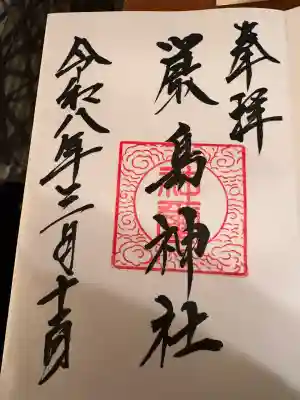 奉拝
厳島神社
令和八年三月十一日